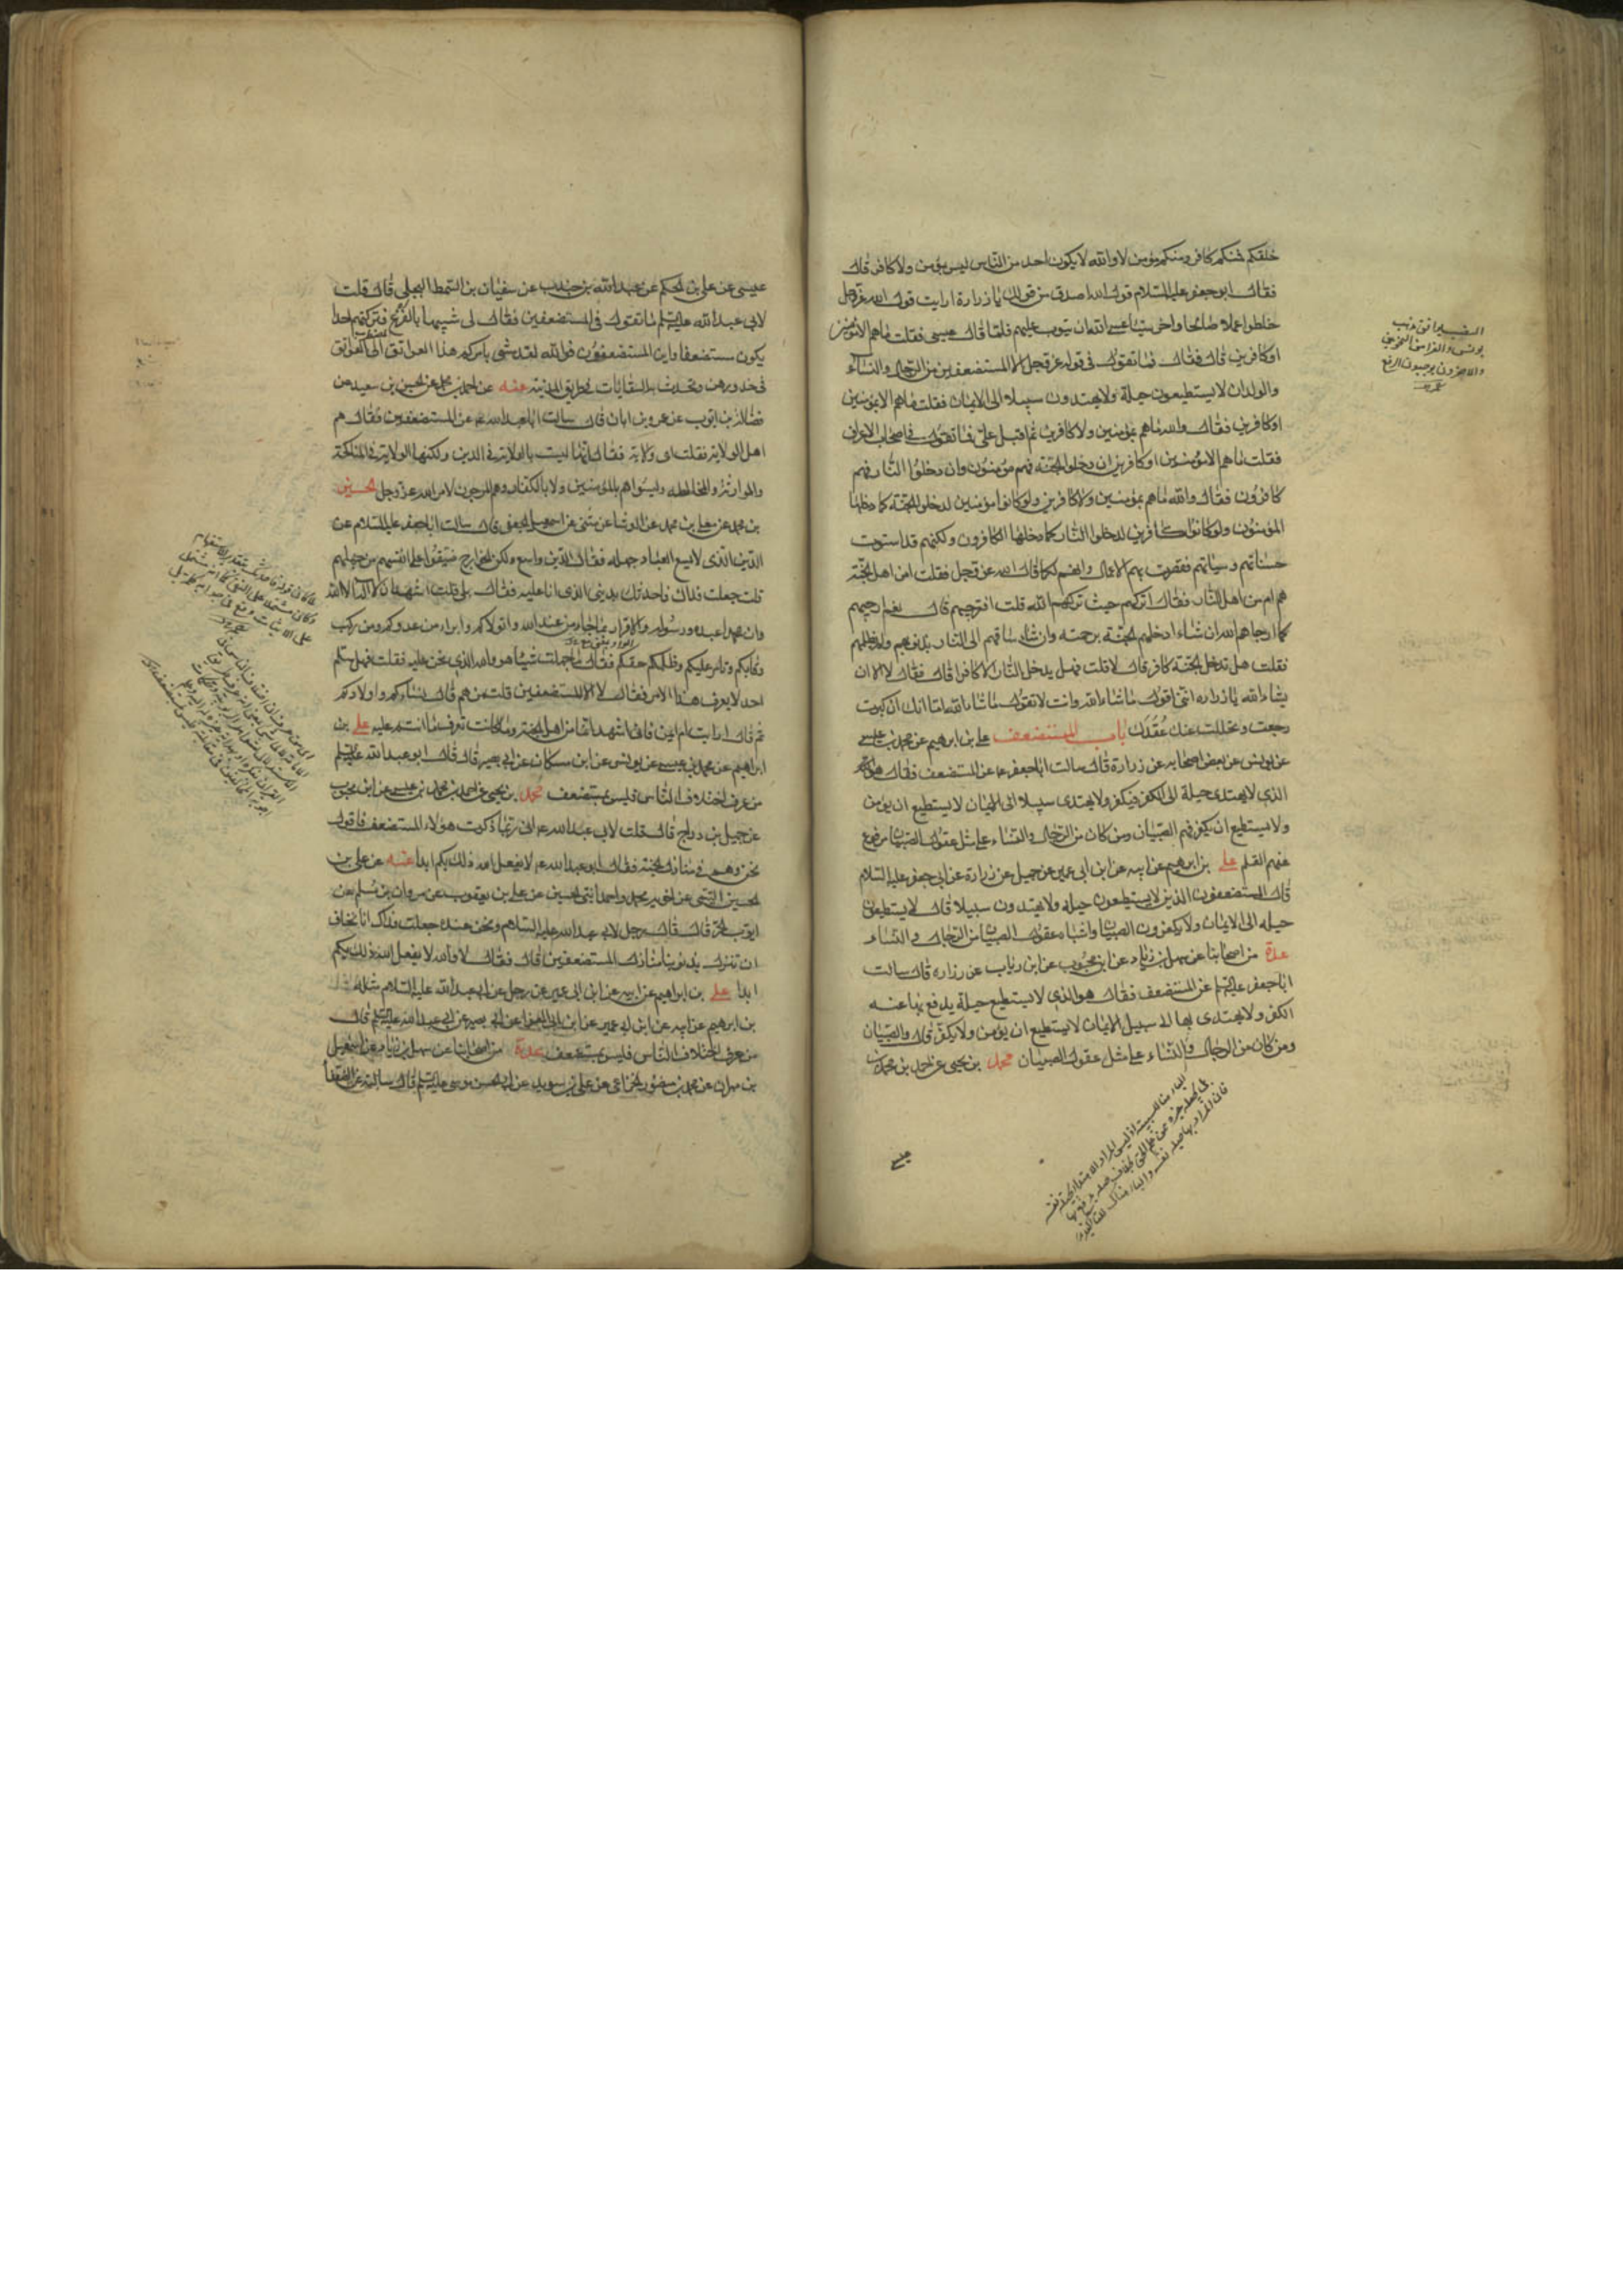 خلقكم فمنكم كافر ومنكم مؤمن لا والله لا يكون احد من الناس ليس بمؤمن ولا كافر قال
فقال ابو جعفر عليه السلام قول الله اصدق من قولك يا زرارة ارايت قول الله عز وجل
خلطوا عملا صالحا واخر سيئا عسى الله ان يتوب عليهم فلما قال عسى فقلت ما هم الا مؤمنين
او كافرين قال فقال فما تقول في قوله عز وجل الا المستضعفين من الرجال والنساء
والولدان لا يستطيعون حيلة ولا يهتدون سبيلا الى الايمان فقلت ما هم الا مؤمنين
او كافرين فقال والله ما هم بمؤمنين ولا كافرين ثم اقبل علي فقال ما تقول في اصحاب الاعراف
فقلت ما هم الا مؤمنين او كافرين ان دخلوا الجنة فهم مؤمنون وان دخلوا النار فهم
كافرون فقال والله ما هم بمؤمنين ولا كافرين ولو كانوا مؤمنين لدخلوا الجنة كما دخلها
المؤمنون ولو كانوا كافرين لدخلوا النار كما دخلها الكافرون ولكنهم قد استوت
حسناتهم وسيئاتهم فقصرت بهم الاعمال وانهم لكما قال الله عز وجل فقلت امن اهل الجنة
هم ام من اهل النار فقال اتركهم حيث تركهم الله قلت افترجيهم قال نعم ارجيهم
كما ارجاهم الله ان شاء ادخلهم الجنة برحمته وان شاء ساقهم الى النار بذنوبهم ولم يظلمهم
فقلت هل تدخل الجنة كافر قال لا قلت فهل يدخل النار الا كافر قال فقال لا الا ان
يشاء الله يا زرارة انني اقول ما شاء الله وانت لا تقول ما شاء الله اما انك ان كبرت
رجعت وتحللت عنك عقدك باب المستضعف علي بن ابرهيم عن محمد بن عيسى
عن يونس عن بعض اصحابه عن زرارة قال سالت ابا جعفر ع عن المستضعف فقال هو
الذي لا يهتدي حيلة الى الكفر فيكفر ولا يهتدي سبيلا الى الايمان لا يستطيع ان يؤمن
ولا يستطيع ان يكفر فهم الصبيان ومن كان من الرجال والنساء على مثل عقول الصبيان مرفوع
عنهم القلم علي بن ابرهيم عن ابيه عن ابن ابي عمير عن جميل عن زرارة عن ابي جعفر عليه السلام
قال المستضعفون الذين لا يستطيعون حيلة ولا يهتدون سبيلا قال لا يستطيعون
حيلة الى الايمان ولا يكفرون الصبيان واشباه عقول الصبيان من الرجال والنساء
عدة من اصحابنا عن سهل بن زياد عن ابن محبوب عن ابن رياب عن زرارة قال سالت
ابا جعفر عليه السلام عن المستضعف فقال هو الذي لا يستطيع حيلة يدفع بها عنه
الكفر ولا يهتدي بها الى سبيل الايمان لا يستطيع ان يؤمن ولا يكفر قال والصبيان
ومن كان من الرجال والنساء على مثل عقول الصبيان محمد بن يحيى عن احمد بن محمد بن
عيسى
عيسى عن علي بن الحكم عن عبد الله بن جندب عن سفيان بن السمط البجلي قال قلت
لابي عبد الله عليه السلام ما تقول في المستضعفين فقال لي شبيها بالفزع فتركتم احدا
يكون مستضعفا واين المستضعفون فوالله لقد مشى بامركم هذا العواتق الى العواتق
في خدورهن وتحدث به السقايات في طريق المدينة عنه عن احمد بن محمد عن الحسين بن سعيد عن
فضالة بن ايوب عن عمرو بن ابان قال سالت ابا عبد الله ع عن المستضعفين فقال هم
اهل الولاية فقلت اي ولاية فقال اما انها ليست بالولاية في الدين ولكنها الولاية في المناكحة
والموارثة والمخالطة وليسوا هم بالمؤمنين ولا بالكفار وهم المرجون لامر الله عز وجل الحسين
بن محمد عن معلى بن محمد عن الوشا عن مثنى عن اسمعيل الجعفي قال سالت ابا جعفر عليه السلام عن
الدين الذي لا يسع العباد جهله فقال الدين واسع ولكن الخوارج ضيقوا على انفسهم من جهلهم
قلت جعلت فداك فاحدثك بديني الذي انا عليه فقال بلى قلت اشهد ان لا اله الا الله
وان محمدا عبده ورسوله والاقرار بما جاء من عند الله واتولاكم وابرا من عدوكم ومن ركب
رقابكم وتامر عليكم وظلمكم حقكم فقال ما جهلت شيئا هو والله الذي نحن عليه فقلت فهل سلم
احد لا يعرف هذا الامر فقال لا الا المستضعفين قلت من هم قال نساءكم واولادكم
ثم قال ارايت ام ايمن فاني اشهد انها من اهل الجنة وما كانت تعرف ما انتم عليه علي بن
ابراهيم عن محمد بن عيسى عن يونس عن ابن مسكان عن ابي بصير قال قال ابو عبد الله عليه السلم
من عرف اختلاف الناس فليس بمستضعف محمد بن يحيى عن احمد بن محمد بن عيسى عن ابن محبوب
عن جميل بن دراج قال قلت لابي عبد الله ع اني ربما ذكرت هؤلاء المستضعف فاقول
نحن وهم في منازل الجنة فقال ابو عبد الله ع لا يفعل الله ذلك بكم ابدا عنه عن علي بن
الحسين التيمي عن اخويه محمد واحمد ابني الحسين عن علي بن يعقوب عن مروان بن مسلم عن
ايوب بن الحر قال قال رجل لابي عبد الله عليه السلام ونحن عنده جعلت فداك انا نخاف
ان ننزل بذنوبنا منازل المستضعفين قال فقال لا والله لا يفعل الله ذلك بكم
ابدا علي بن ابراهيم عن ابيه عن ابن ابي عمير عن رجل عن ابي عبد الله عليه السلام مثله
بن ابرهيم عن ابيه عن ابن ابي عمير عن ابن ابي المغرا عن ابي بصير عن ابي عبد الله عليه السلم قال
من عرف اختلاف الناس فليس بمستضعف عدة من اصحابنا عن سهل بن زياد عن اسمعيل
بن مهران عن محمد بن منصور الخزاعي عن علي بن سويد عن ابي الحسن موسى عليه السلم قال سالته عن الضعفاء